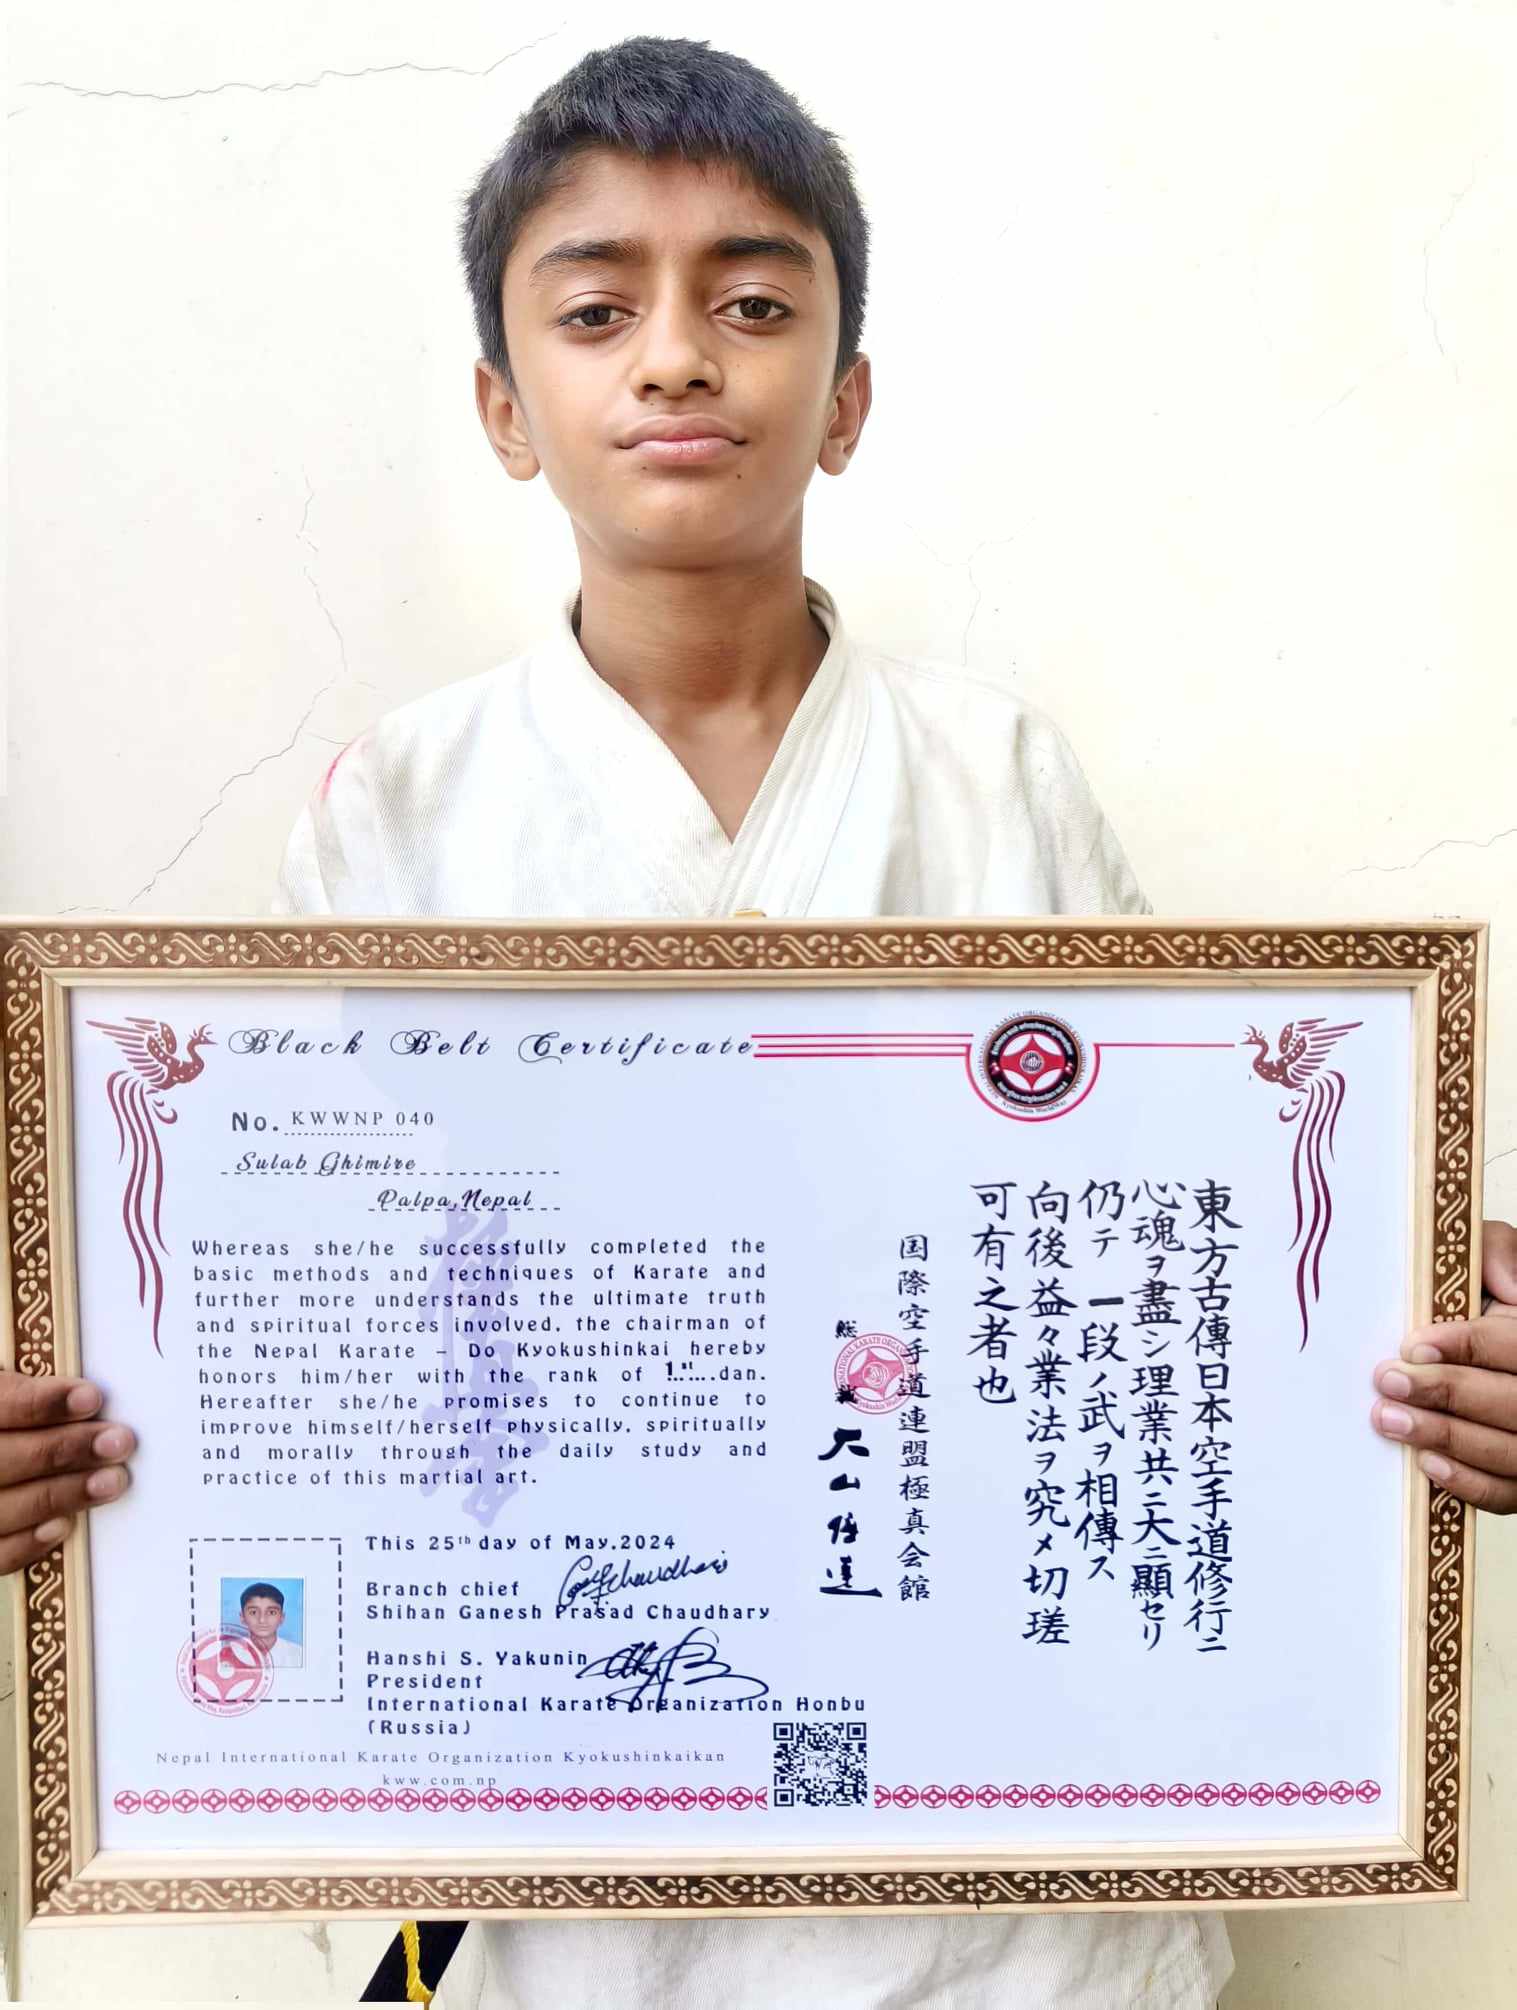 Black Belt Certificate
No. KWWNP 040
Sulab Ghimire
Palpa, Nepal
Whereas she/he successfully completed the
basic methods and techniques of Karate and
further more understands the ultimate truth
and spiritual forces involved, the chairman of
the Nepal Karate – Do Kyokushinkai hereby
honors him/her with the rank of 1st dan.
Hereafter she/he promises to continue to
improve himself/herself physically, spiritually
and morally through the daily study and
practice of this martial art.
This 25th day of May, 2024
Branch chief
Shihan Ganesh Prasad Chaudhary
Hanshi S. Yakunin
President
International Karate Organization Honbu
(Russia)
Nepal International Karate Organization Kyokushinkaikan
kww.com.np
東方古傳日本空手道修行ニ
心魂ヲ盡シ理業共ニ大ニ顯セリ
仍テ一段ノ武ヲ相傳ス
向後益々業法ヲ究メ切瑳
可有之者也
国際空手道連盟極真会館
大山倍達